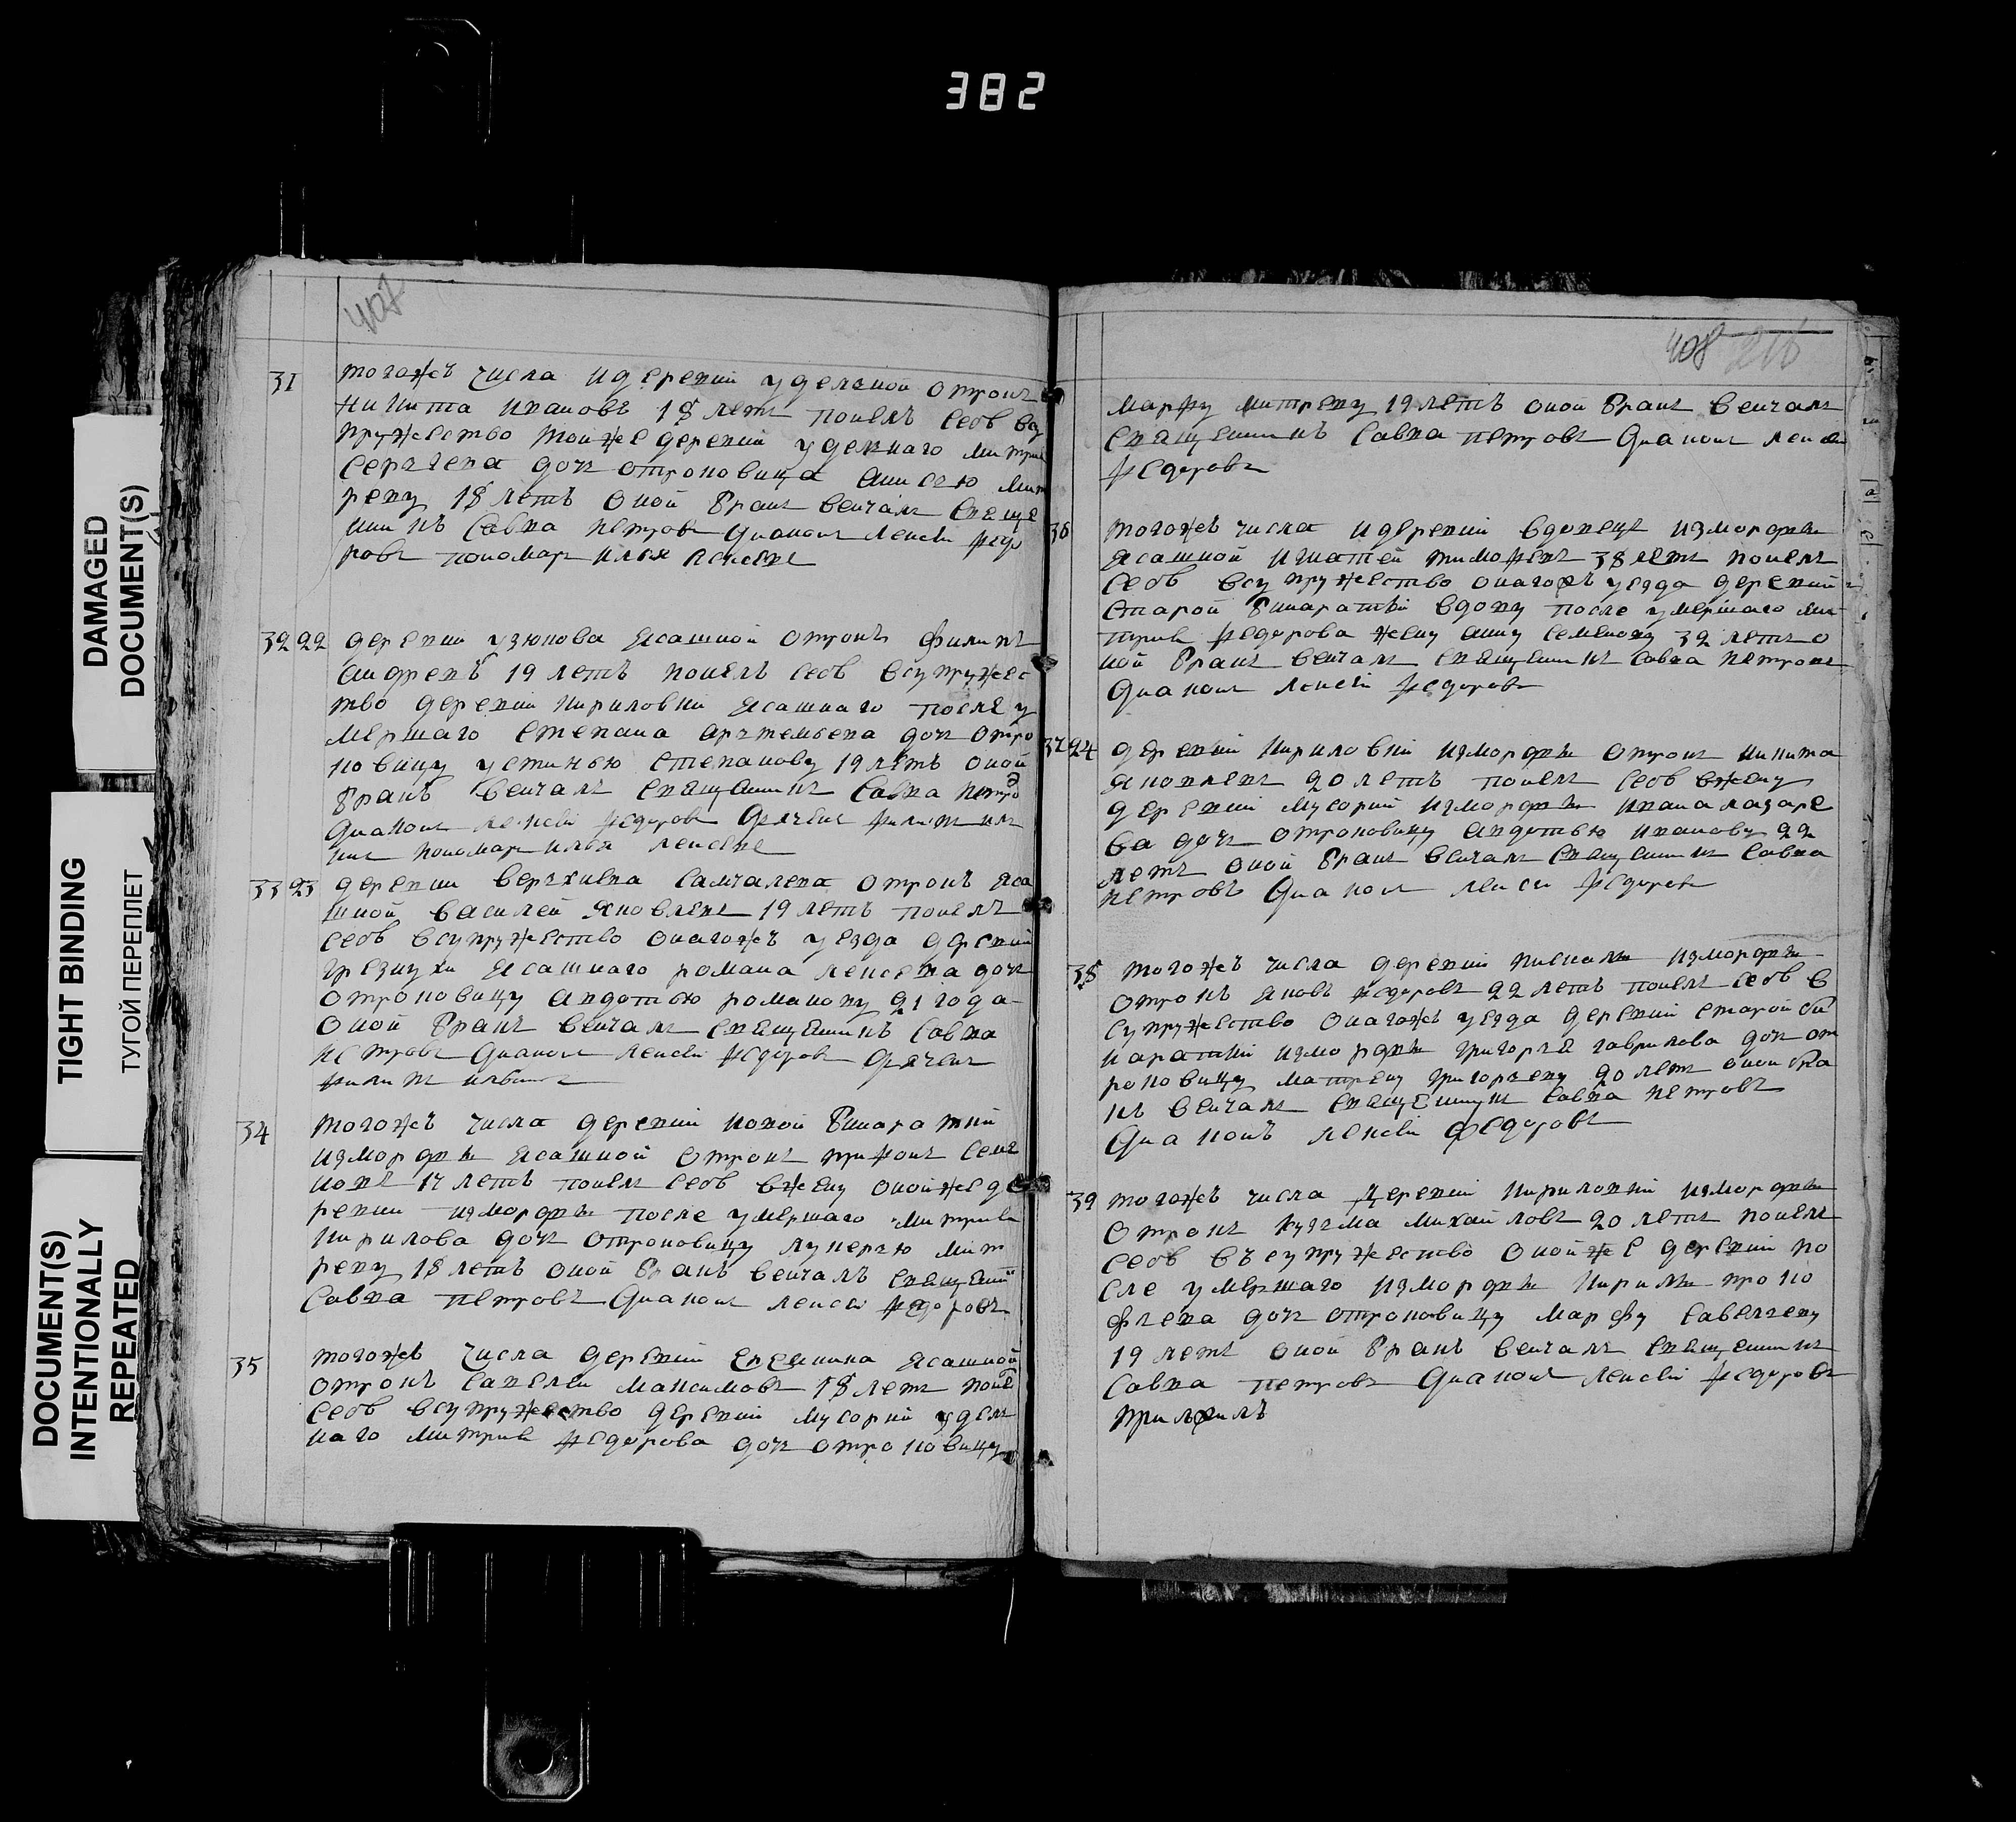 382
DAMAGED
DOCUMENT(S)
TIGHT BINDING
ТУГОЙ ПЕРЕПЛЕТ
DOCUMENT(S)
INTENTIONALLY
REPEATED
407
31 тогожъ числа и деревни удельной отрокъ
никита ивановъ 18 летъ понелъ себѣ всу
пружество тойже деревни уделнаго митрия
сергѣева дочь отроковица анисью мит
реву 18 летъ оной бракъ венчалъ свяще
никъ савва петровъ диаконъ лексѣй федо
ровъ пономарь илья лексеев
32 22 деревни узюкова ясашной отрокъ филипъ
андреевъ 19 летъ понелъ себѣ всупружес
тво деревни кириловки ясашнаго после у
мершаго степана артемьева дочь отро
ковицу устинью степанову 19 летъ оной
бракъ венчалъ священникъ савва петро
диаконъ лексѣй федоровъ дячекъ филипъ иль
инъ пономарь илья лексеев
33 23 деревни верхнева самчалева отрокъ яса
шной василей яковлевъ 19 летъ понелъ
себѣ всупружество онагожъ уезда деревни
грезнухи ясашнаго романа лексева дочь
отроковицу авдотью романову 21 года
оной бракъ венчалъ священникъ савва
петровъ диаконъ лексѣй федоровъ дячекъ
филипъ ильинъ
34 тогожъ числа деревни новой бинаратки
измордвы ясашной отрокъ трифонъ семе
новъ 17 летъ понелъ себѣ вжену онойже де
ревни измордвы после умершаго митрия
кирилова дочь отроковицу лукерью мит
реву 18 летъ оной бракъ венчалъ священи
савва петровъ диаконъ лексѣй федоровъ
35 тогожъ числа деревни еремкина ясашной
отрокъ савелей максимовъ 18 летъ поне
себѣ всупружество деревни мусорки удель
наго митрия федорова дочь отроковицу
408 216
марфу митреву 19 летъ оной бракъ венчалъ
священникъ савва петровъ диаконъ лексѣй
федоровъ
36 тогожъ числа и деревни вдовецъ измордвы
ясашной игнатей тимофеевъ 38 летъ понелъ
себѣ всупружество онагожъ уезда деревни
старой бинаратки вдову после умершаго ми
трия федорова жену анну семенову 32 летъ о
ной бракъ венчалъ священникъ савва петровъ
диаконъ лексѣй федоровъ
37 24 деревни кириловки измордвы отрокъ никита
яковлевъ 20 летъ понелъ себѣ вжену
деревни мусорки измордвы ивана лазаре
ва дочь отроковицу авдотью иванову 22
летъ оной бракъ венчалъ священникъ савва
петровъ диаконъ лексѣй федоровъ
38 тогожъ числа деревни пискалы измордвы
отрокъ яковъ федоровъ 22 летъ понелъ себѣ в
супружество онагожъ уезда деревни старой би
наратки измордвы григорья гаврилова дочь от
роковицу матрену григорьеву 20 летъ оной бра
къ венчалъ священникъ савва петровъ
диаконъ лексѣй федоровъ
39 тогожъ числа деревни кириловки измордвы
отрокъ кузма михайловъ 20 летъ понелъ
себѣ въсупружество онойже деревни по
сле умершаго измордвы кирилы проко
фьева дочь отроковицу марфу савельеву
19 летъ оной бракъ венчалъ священникъ
савва петровъ диаконъ лексѣй федоровъ